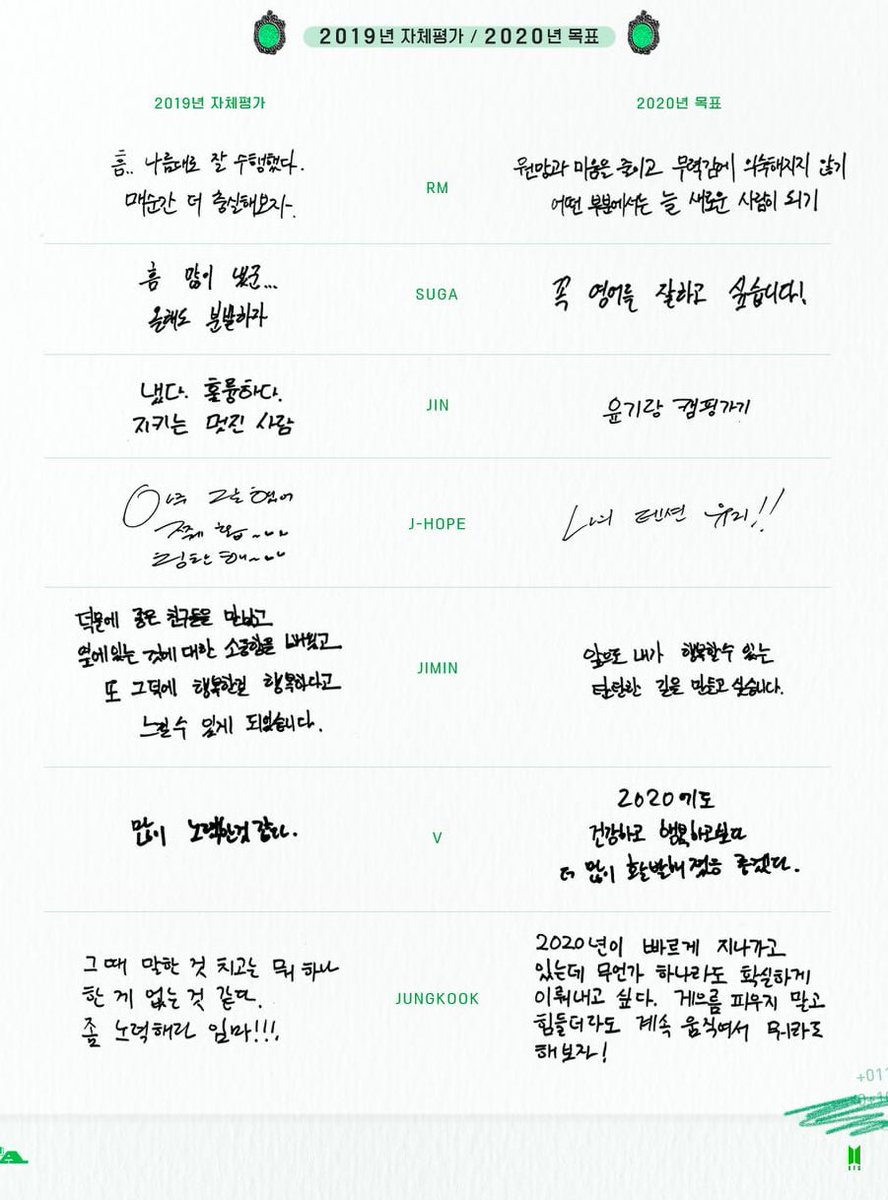 2019년 자체평가 / 2020년 목표
2019년 자체평가
2020년 목표
흠.. 나름대로 잘 수행했다.
매순간 더 충실해보자-.
RM
원망과 미움을 줄이고 무력감에 익숙해지지 않기
어떤 부분에서는 늘 새로운 사람이 되기
흠 많이 냈군...
올해도 분발하자
SUGA
꼭 영어를 잘하고 싶습니다!
냈다. 훌륭하다.
지키는 멋진 사람
JIN
윤기랑 캠핑가기
J-HOPE
나의 텐션 유지!!
덕분에 좋은 친구들을 만났고
옆에있는 것에 대한 소중함을 배웠고
또 그덕에 행복한걸 행복하다고
느낄수 있게 되었습니다.
JIMIN
앞으로 내가 행복할수 있는
탄탄한 길을 만들고 싶습니다.
많이 노력한것 같다.
V
2020년도
건강하고 행복하고보다
더 많이 활발해 졌음 좋겠다.
그때 말한 것 치고는 뭐 하나
한 게 없는 것 같다.
좀 노력해라 임마!!!
JUNGKOOK
2020년이 빠르게 지나가고
있는데 무언가 하나라도 확실하게
이뤄내고 싶다. 게으름 피우지 말고
힘들더라도 계속 움직여서 뭐라도
해보자!
+011
BTS